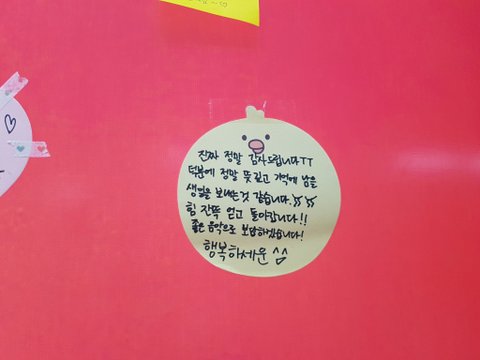 진짜 정말 감사드립니다ㅜㅜ
덕분에 정말 뜻깊고 기억에 남을
생일을 보내는것 같습니다.ㅠㅠ
힘 잔뜩 얻고 돌아갑니다!!
좋은 음악으로 보답하겠습니다!
행복하세운 ^^